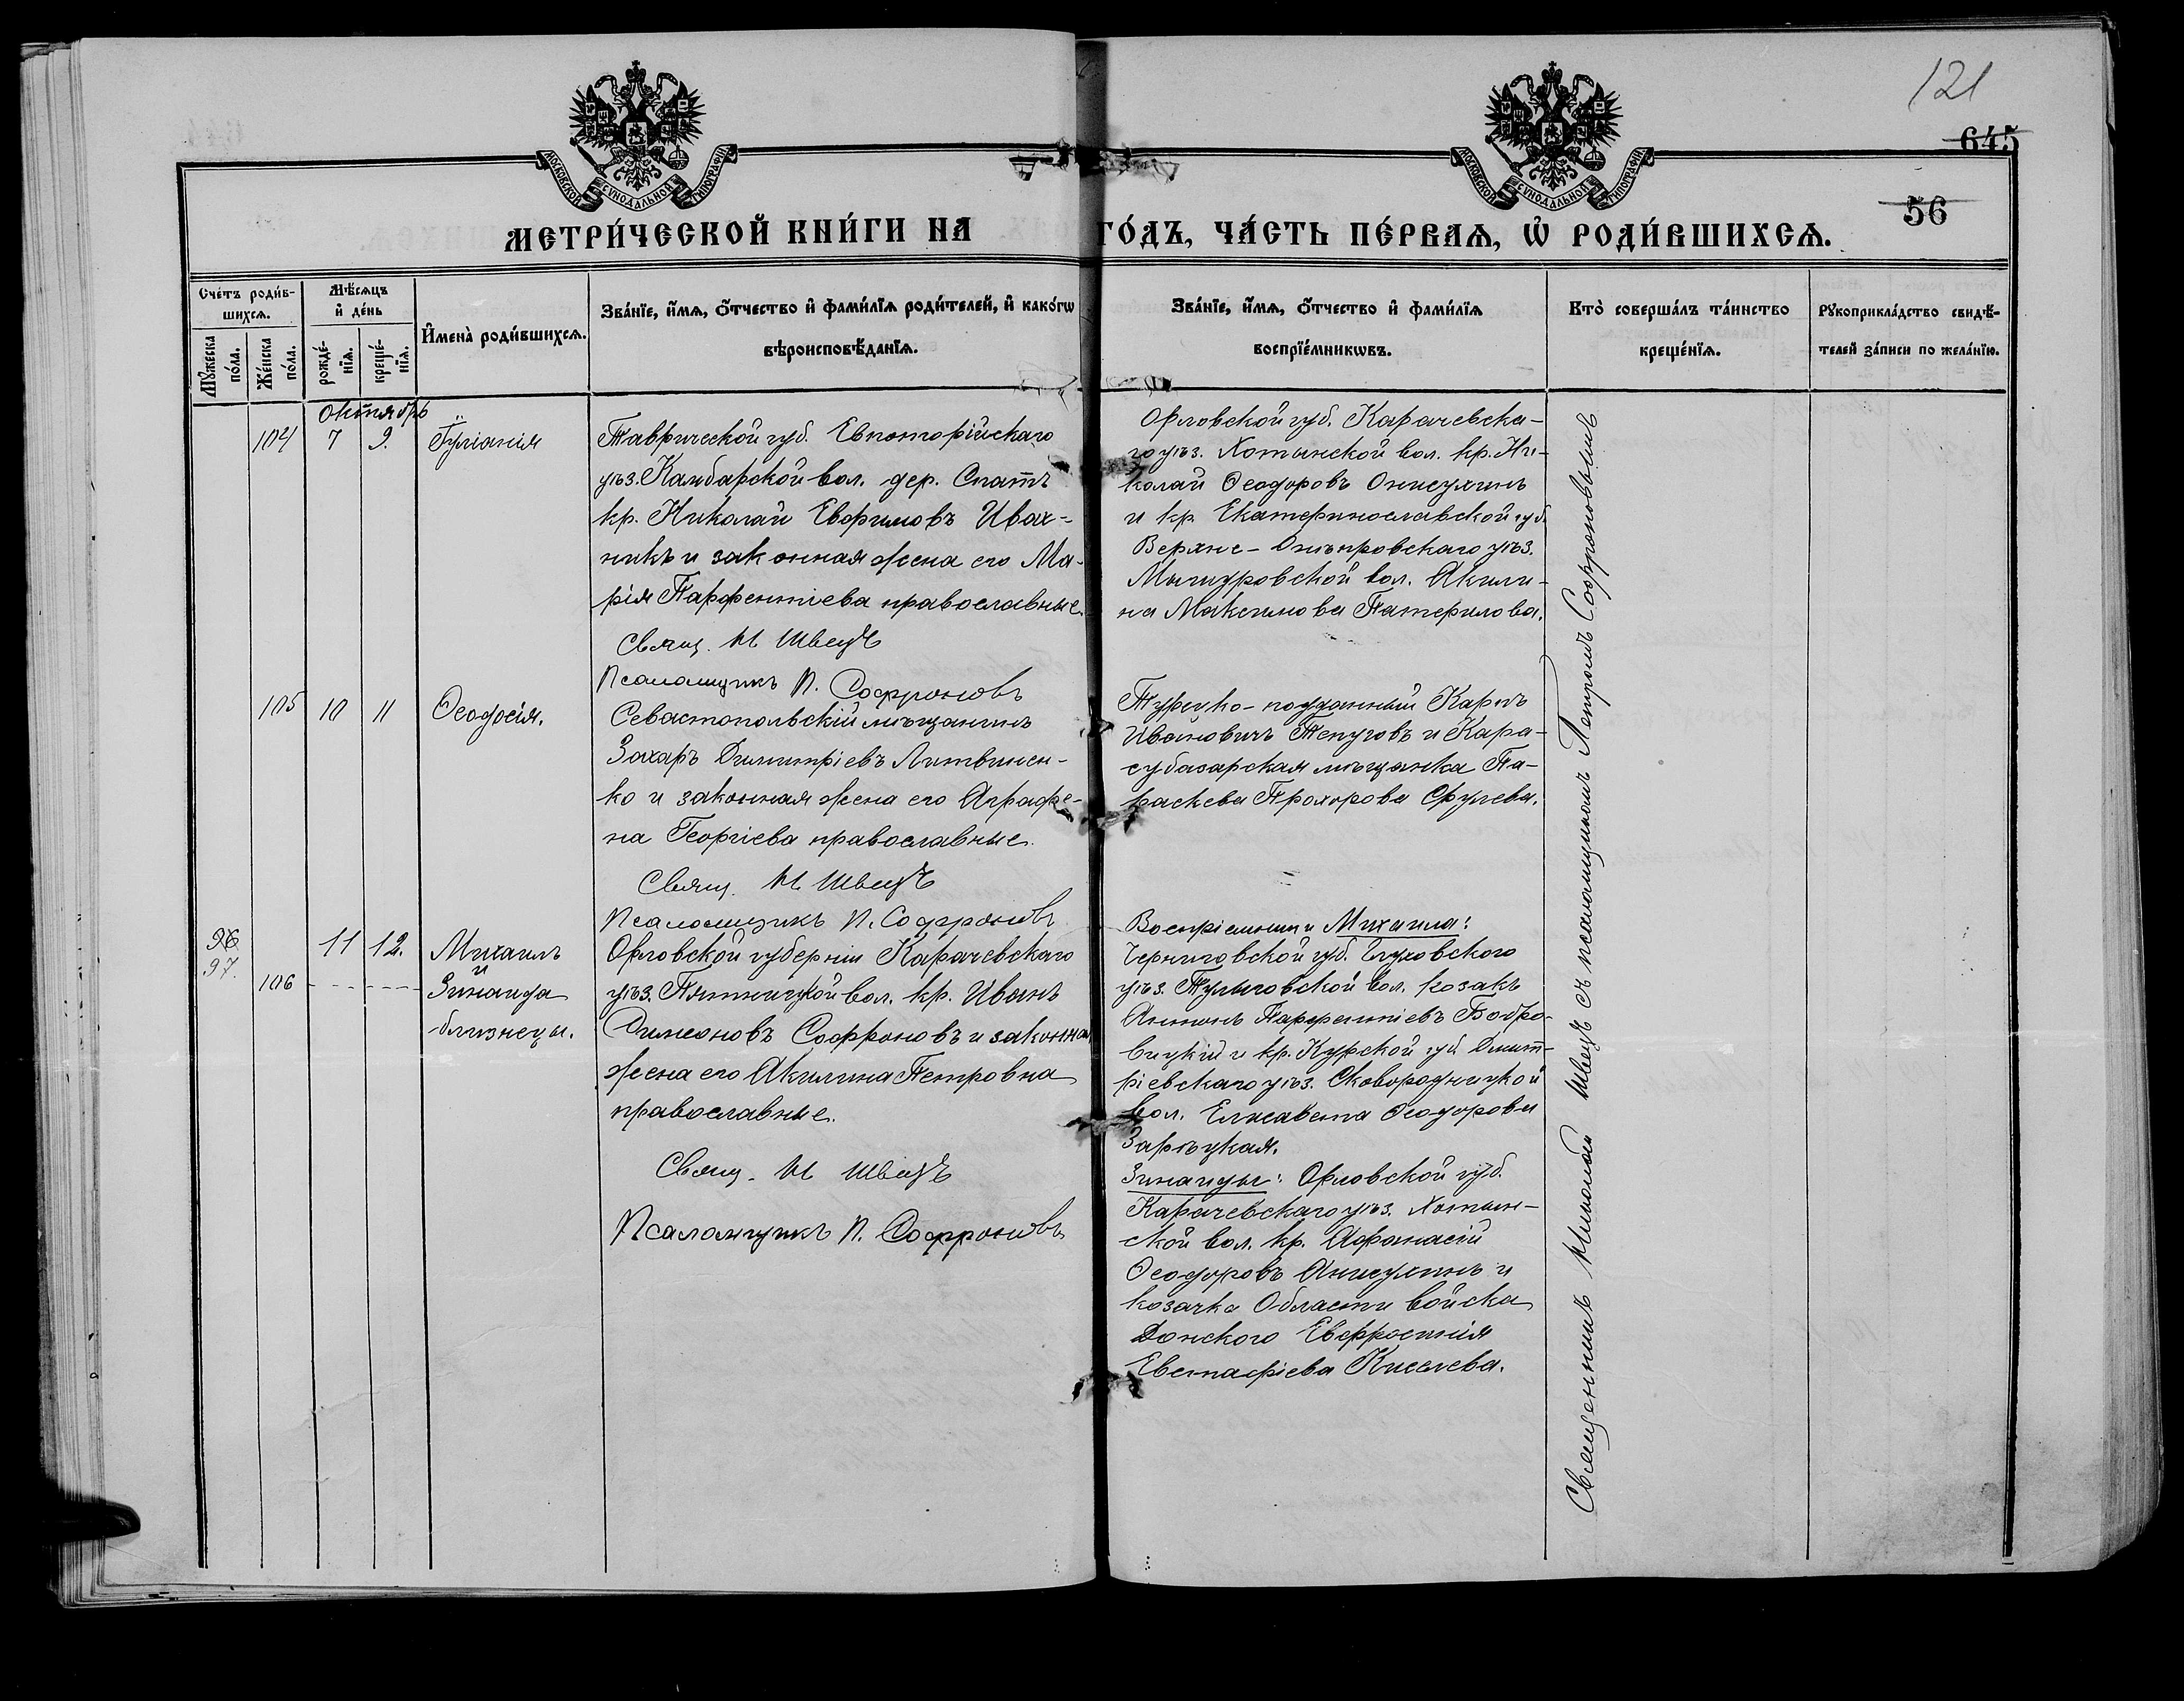 121
645
56
МОСКОВСКОЙ СѴНОДАЛЬНОЙ ТИПОГРАФІИ
МОСКОВСКОЙ СѴНОДАЛЬНОЙ ТИПОГРАФІИ
МЕТРИ́ЧЕСКОЙ КНИ́ГИ НА ГО́ДЪ, ЧА́СТЬ ПЕ́РВАЯ, Ѡ҆ РОДИ́ВШИХСЯ.
Сче́тъ роди́в-
шихсѧ.
Мꙋ́жеска по́ла.
Же́нска по́ла.
Мѣ́сѧцъ
и҆ де́нь
рожде́-
нїѧ.
креще́-
нїѧ.
И҆мена̀ роди́вшихсѧ.
Зва́нїе, и҆́мѧ, ѻ҆́тчество и҆ фами́лїѧ роди́телей, и҆ како́гѡ
вѣроисповѣ́данїѧ.
Зва́нїе, и҆́мѧ, ѻ҆́тчество и҆ фами́лїѧ
воспрїе́мникѡвъ.
Кто̀ соверша́лъ та́инство
креще́нїѧ.
Рꙋкоприкла́дство свидѣ́-
телей за́писи по жела́нїю.
октябрь
104 7 9. Іуліанія
Таврической губ. Евпаторійскаго
уѣз. Камбарской вол. дер. Спатъ
кр. Николай Евфимовъ Ивах-
никъ и законная жена его Ма-
рія Парфентіева православные.
Свящ. Н Швецъ
Псаломщикъ П. Софроновъ
Орловской губ. Карачевска-
го уѣз. Хотынской вол. кр. Ни-
колай Ѳеодоровъ Онисухинъ
и кр. Екатеринославской губ.
Верхне-Днѣпровскаго уѣз.
Мишуровской вол. Акили-
на Максимова Патерилова.
105 10 11 Ѳеодосія.
Севастопольскій мѣщанинъ
Захаръ Димитріевъ Литвинен-
ко и законная жена его Аграфе-
на Георгіева православные.
Свящ. Н Швецъ
Псаломщикъ П. Софроновъ
Турецко-подданный Карпъ
Ивановичъ Тепуговъ и Кара-
субазарская мѣщанка Па-
раскева Прохорова
96
97. 11 12. Михаилъ
и
106 Зинаида
близнецы.
Орловской губерніи Карачевскаго
уѣз. Пятницкой вол. кр. Иванъ
Симеоновъ Софроновъ и законная
жена его Акилина Петровна
православные.
Свящ. Н Швецъ
Псаломщикъ П. Софроновъ
Воспріемники Михаила:
Черниговской губ. Глуховского
уѣз. Тулиговской вол. козакъ
Антонъ Парфентіевъ Бобро-
вицкій и кр. Курской губ. Дмит-
ріевскаго уѣз. Сковородницкой
вол. Елисавета Ѳеодорова
Зарѣцкая.
Зинаиды: Орловской губ.
Карачевскаго уѣз. Хотын-
ской вол. кр. Афанасій
Ѳеодоровъ Анисухинъ и
козачка Области войска
Донского Евфросинія
Евстафіева Киселева.
Священникъ Николай Швецъ съ псаломщикомъ Петромъ Софроновымъ